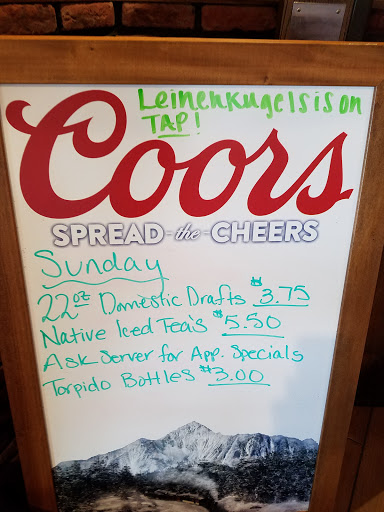 Leinenkugels is on
TAP!
Coors
SPREAD the CHEERS
Sunday
22oz Domestic Drafts $3.75
Native Iced Tea's $5.50
Ask Server for App. Specials
Torpido Bottles $3.00